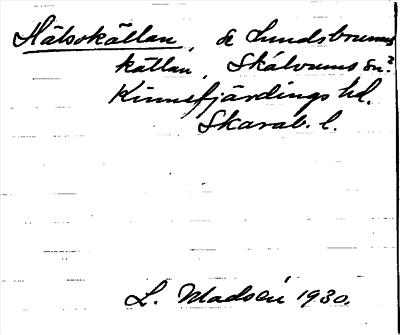 Hälsokällan, se Lundsbrunns
källan, Skälvums sn?
Kinnefjärdings hd.
Skarab. l.
L. Madsén 1930.